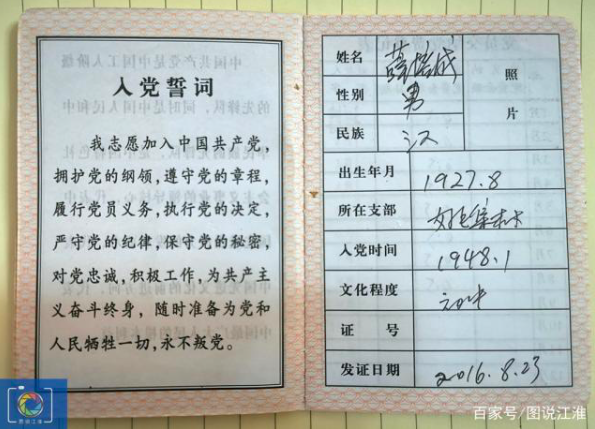 入党誓词
我志愿加入中国共产党，
拥护党的纲领，遵守党的章程，
履行党员义务，执行党的决定，
严守党的纪律，保守党的秘密，
对党忠诚，积极工作，为共产主
义奋斗终身，随时准备为党和
人民牺牲一切，永不叛党。
姓名
性别 男
民族 汉
照片
出生年月 1927.8
所在支部
入党时间 1948.1
文化程度 初中
证号
发证日期 2016.8.23
图说江淮
百家号/图说江淮